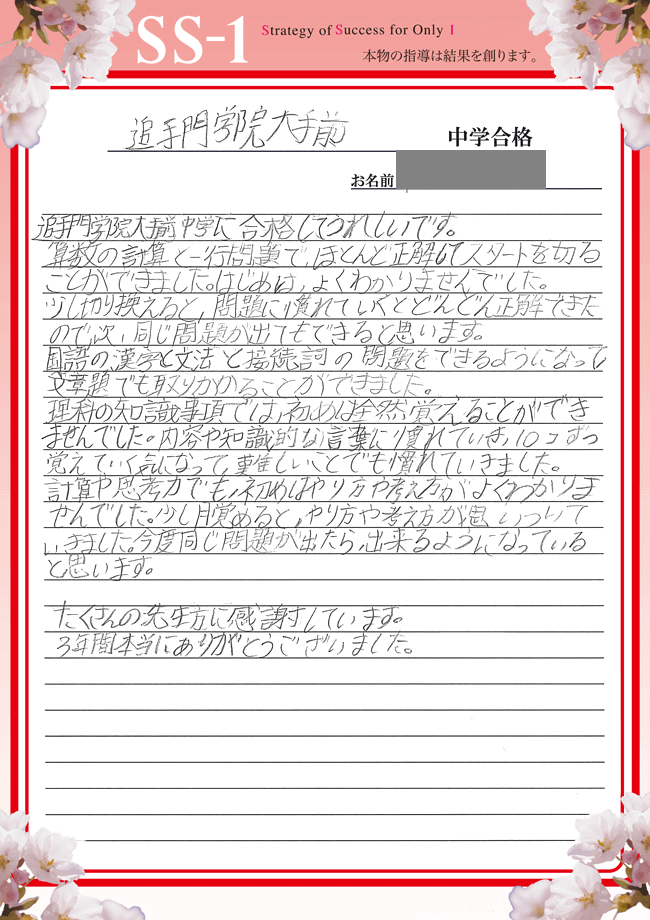 SS-1
Strategy of Success for Only 1
本物の指導は結果を創ります。
追手門学院大手前
中学合格
お名前
追手門学院大手前中学に合格してうれしいです。
算数の計算と一行問題で、ほとんど正解してスタートを切る
ことができました。はじめは、よくわかりませんでした。
少し切り換えると、問題に慣れていくとどんどん正解できた
ので、次、同じ問題が出てもできると思います。
国語の漢字と文法と接続詞の問題をできるようになって
文章題でも取りかかることができました。
理科の知識事項では、初めは全然、覚えることができ
ませんでした。内容や知識的な言葉に慣れていき、10コずつ
覚えていく気になって、難しいことでも慣れていきました。
計算や思考力でも、初めはやり方や考え方がよくわかりま
せんでした。少し目覚めると、やり方や考え方が思いついて
いきました。今度同じ問題が出たら、出来るようになっている
と思います。
たくさんの先生方に感謝しています。
3年間本当にありがとうございました。